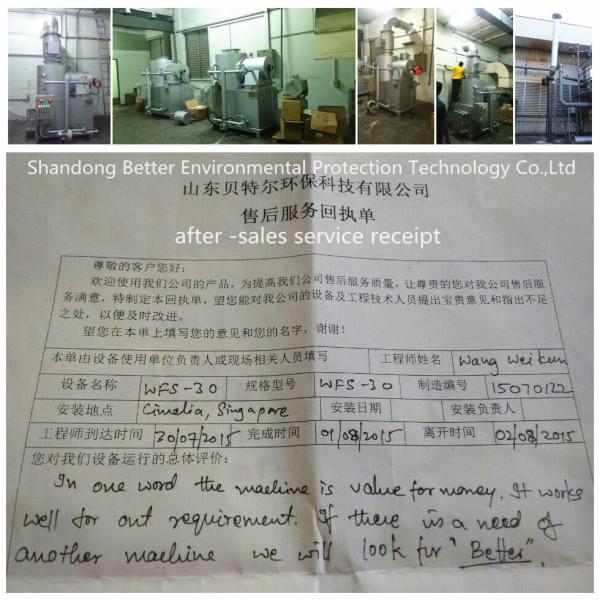 Shandong Better Environmental Protection Technology Co.,Ltd
山东贝特尔环保科技有限公司
售后服务回执单
after -sales service receipt
尊敬的客户您好:
欢迎使用我们公司的产品，为提高我们公司售后服务质量，让尊贵的您对我公司售后服
务满意，特制定本回执单，望您能对我公司的设备及工程技术人员提出宝贵意见和指出不足
之处，以便及时改进。
望您在本单上填写您的意见和您的名字，谢谢!
本单由设备使用单位负责人或现场相关人员填写 工程师姓名 Wang Weikun
设备名称 WFS-30 规格型号 WFS-30 制造编号 15070122
安装地点 Cimelia, Singapore 安装日期 安装负责人
工程师到达时间 30/07/2015 完成时间 01/08/2015 离开时间 02/08/2015
您对我们设备运行的总体评价:
In one word the machine is value for money. It works
well for out requirement. If there is a need of
another machine we will look for "Better".